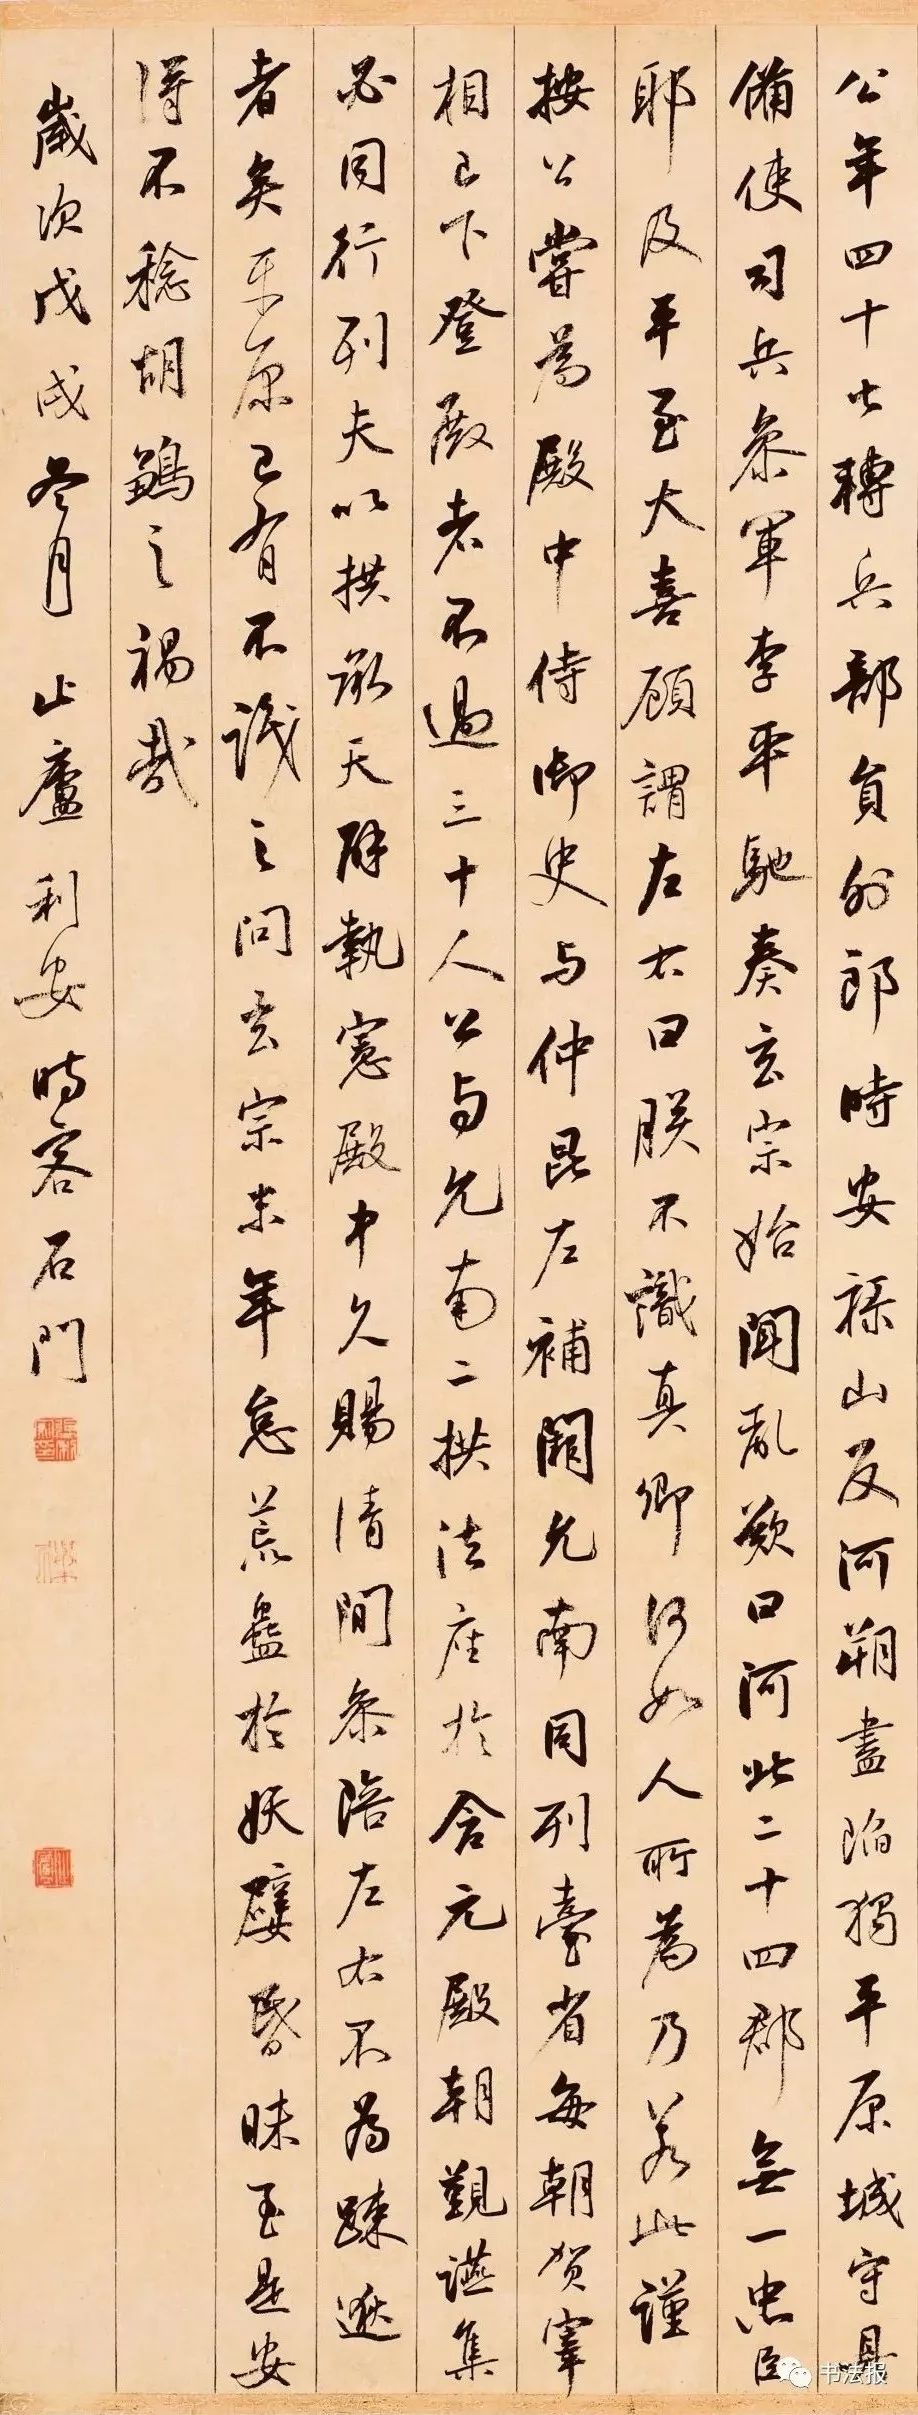 公年四十七轉兵部員外郎時安祿山反河朔盡陷獨平原城守具
備使司兵參軍李平馳奏玄宗始聞亂歎曰河北二十四郡無一忠臣
耶及平至大喜顧謂左右曰朕不識真卿何如人所為乃若此謹
按公嘗為殿中侍御史与仲昆左補闕允南同列臺省每朝賀宰
相已下登殿者不過三十人公与允南二拱法座於含元殿朝覲讌集
必同行列夫以拱承天辟執憲殿中久賜清閒參陪左右不為踈逖
者矣平原已有不識之問玄宗末年怠荒蠱於妖嬖昏昧至是安
得不稔胡鶵之禍哉
歲次戊戌冬月止廬利安時客石門
书法报